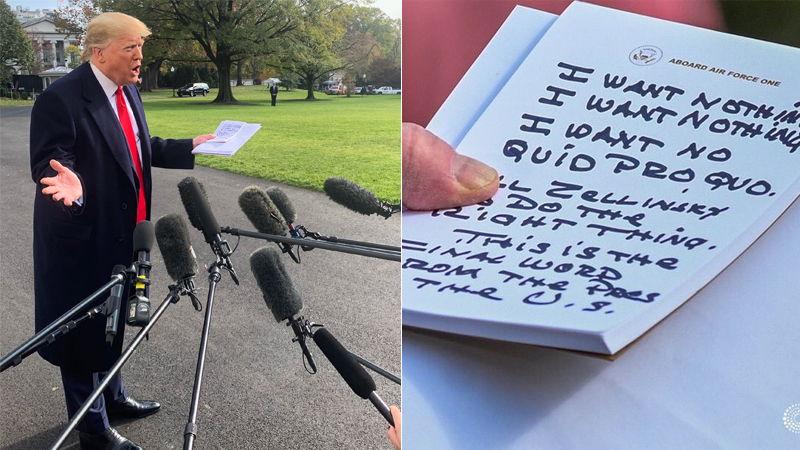 ABOARD AIR FORCE ONE
I WANT NOTHIN
I WANT NOTHING
I WANT NO
QUID PRO QUO.
ELL ZELLINSKY
DO THE
RIGHT THING.
THIS IS THE
FINAL WORD
FROM THE PRES
THE U.S.